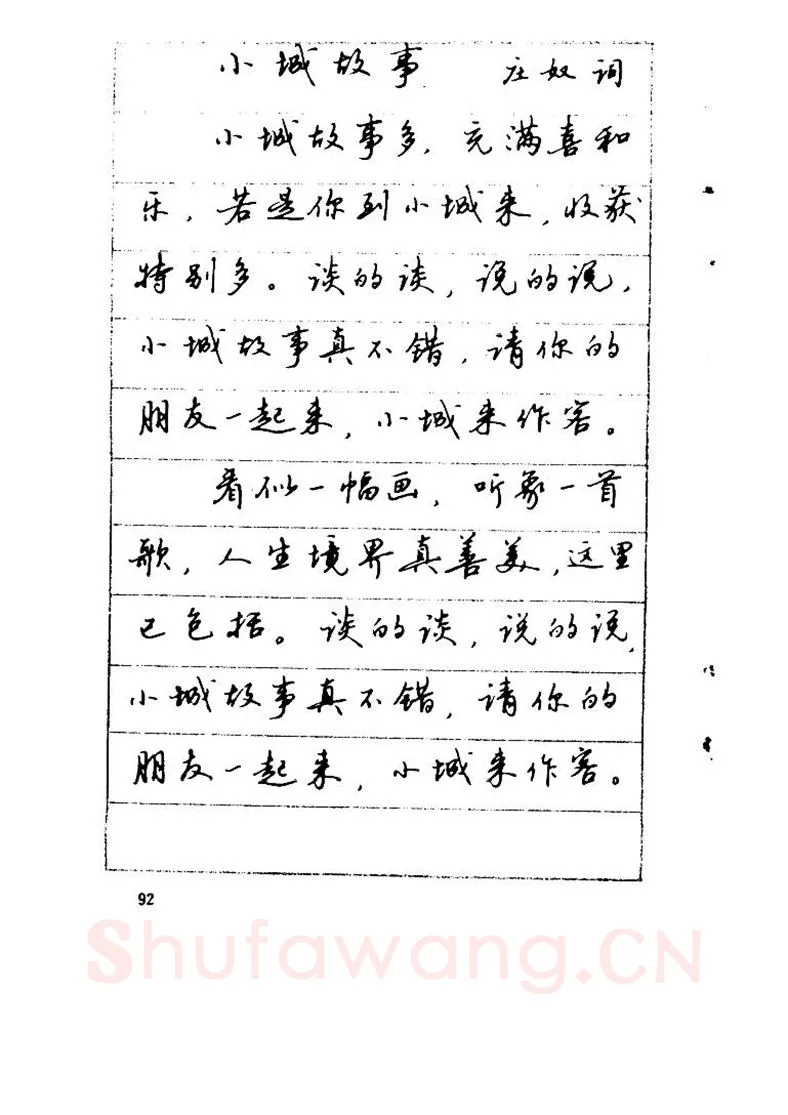 小城故事 庄奴词
小城故事多，充满喜和
乐，若是你到小城来，收获
特别多。谈的谈，说的说，
小城故事真不错，请你的
朋友一起来，小城来作客。
看似一幅画，听象一首
歌，人生境界真善美，这里
已包括。谈的谈，说的说，
小城故事真不错，请你的
朋友一起来，小城来作客。
92
Shufawang.CN